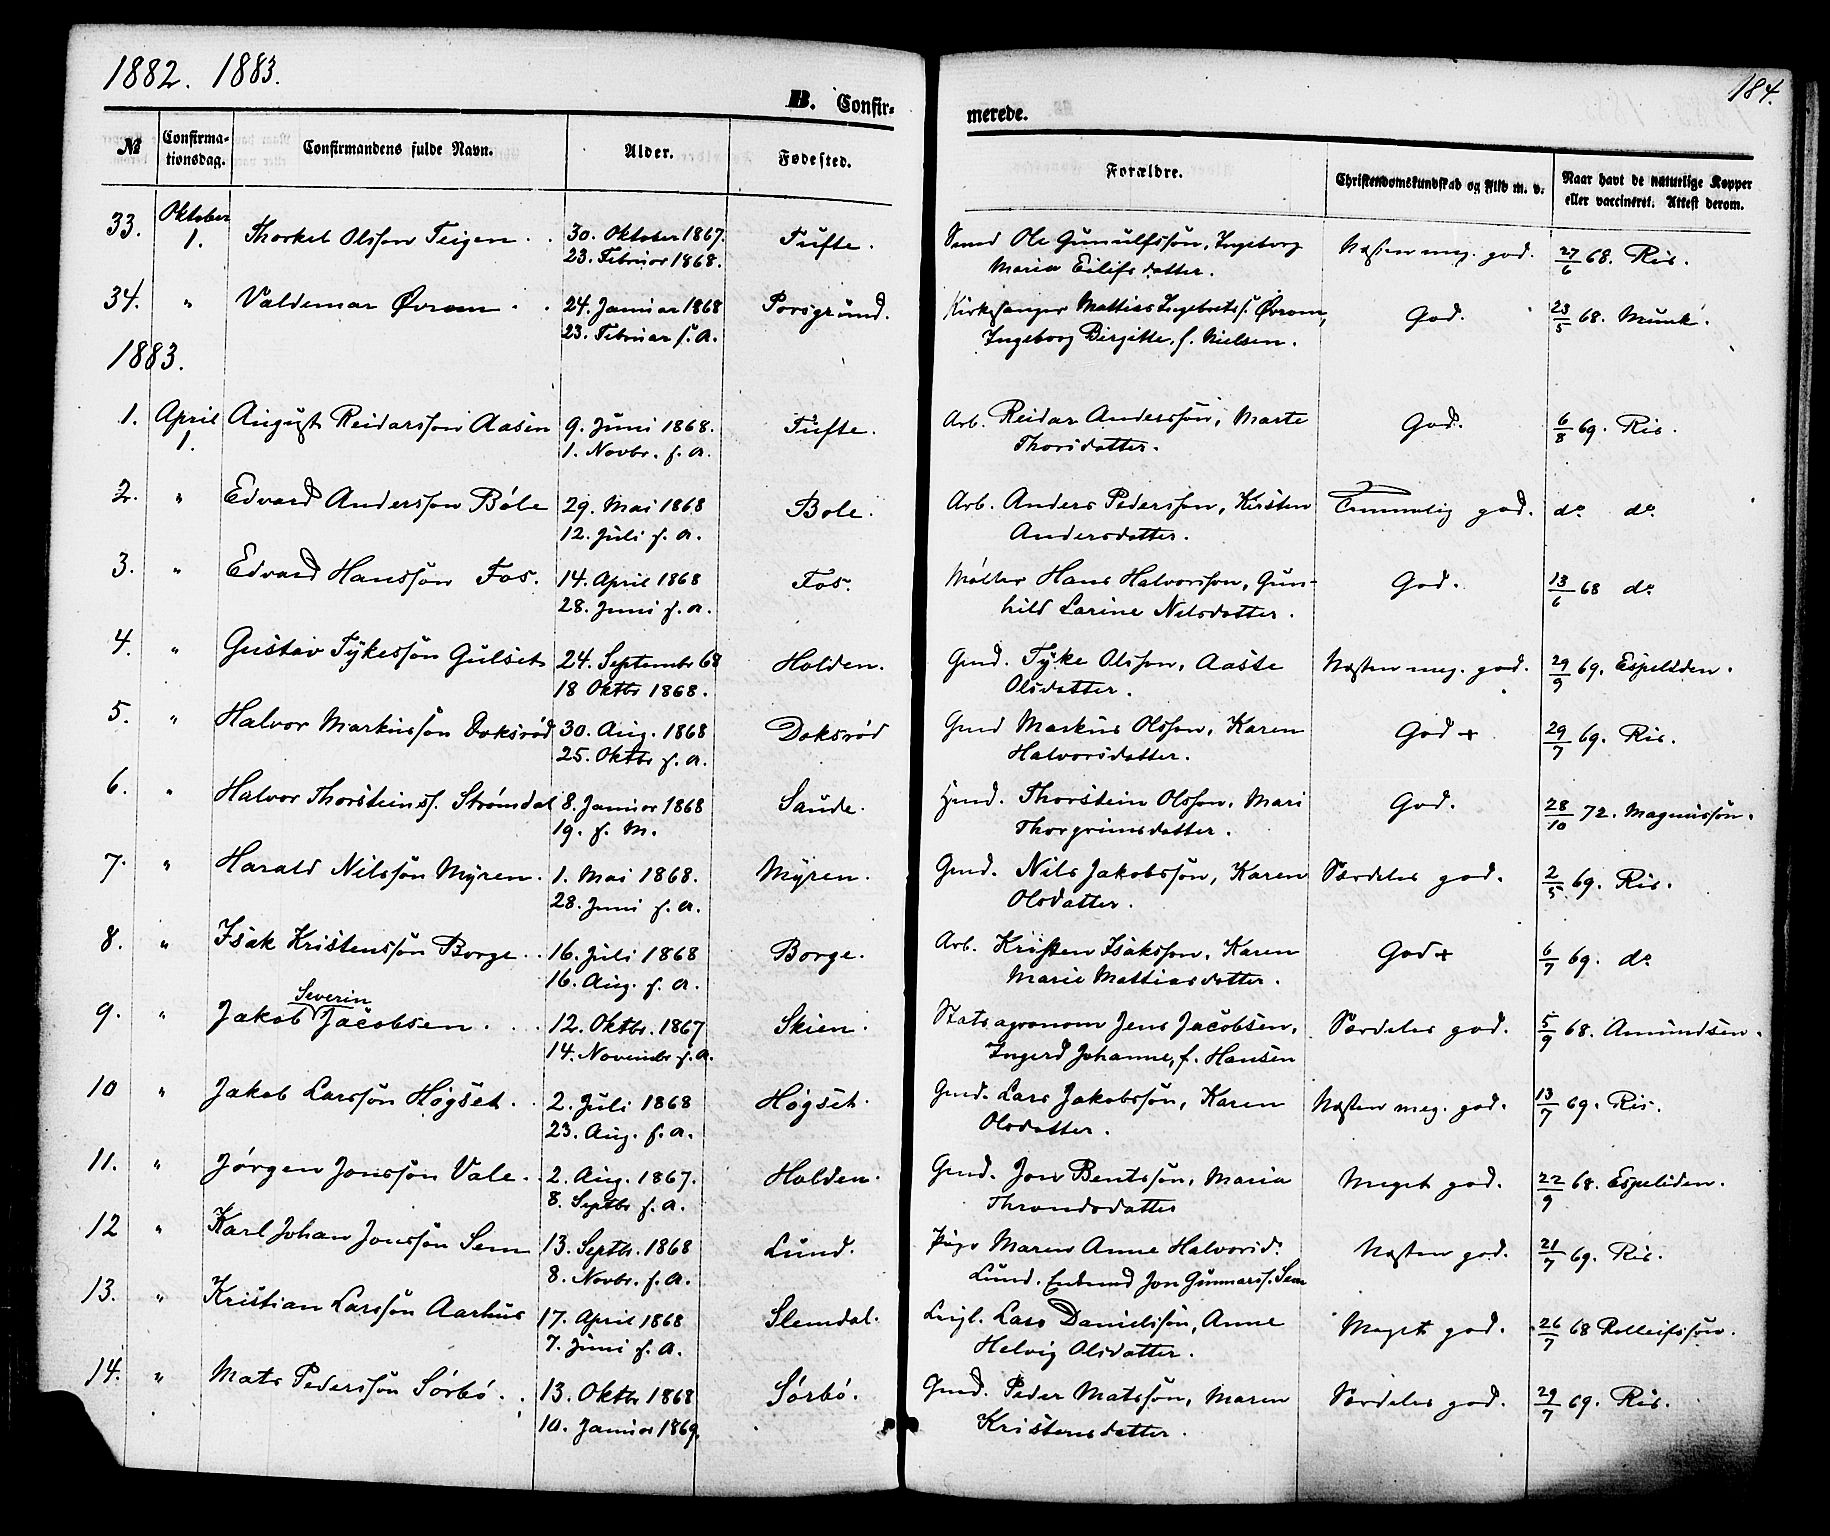 1882. 1883.
184.
B. Confir-
merede.
№
Confirma-
tionsdag.
Confirmandens fulde Navn.
Alder.
Fødested.
Forældre.
Christendomskundskab og Flid m. v.
Naar havt de naturlige Kopper
eller vaccineret. Attest derom.
33. Oktober 1. Thorkel Olsson Teigen. 30. Oktober 1867. Tufte. Ole Gunulfsson, Ingeborg Næsten meg. god. 27/6 68. Ris.
23. Februar 1868. Maria Eilifsdatter.
34. " Valdemar Øvrom. 24. Januar 1868 Porsgrund. Kirkesanger Mattias Ingebrets. Øvrom, God. 23/5 68. Munk.
23. Februar s. A. Ingeborg Birgitte, f. Nielsen.
1883.
1. April 1. August Reidarsson Aasen 9. Juni 1868. Tufte. Arb. Reidar Andersson, Marte God. 6/8 69. Ris.
1. Novbr. s. A. Thorsdatter.
2. " Edvard Andersson Böle 29. Mai 1868 Bole. Arb. Anders Pedersson, Kirsten Temmelig god. do do
12. Juli s. A. Andersdatter.
3. " Edvard Hansson Fos. 14. April 1868 Fos. Møller Hans Halvorsson, Gun- God. 13/6 68 do
28. Juni s. A. hild Larine Nilsdatter.
4. " Gustav Tykesson Gulset 24. Septembr 68 Holden. Gmd. Tyke Olsson, Aaste Næsten meg. god. 29/9 69. Espeliden.
18 Oktbr 1868. Olsdatter.
5. " Halvor Markusson Doksrød 30. Aug. 1868 Doksrød Gmd Markus Olsson, Karen God + 29/7 69. Ris.
25. Oktbr s. A. Halvorsdatter.
6. " Halvor Thorsteinss. Strømdal 8. Januar 1868 Saude. Hmd. Thorstein Olsson, Mari God. 28/10 72. Magnusson.
19. s. M. Thorgrimsdatter.
7. " Harald Nilsson Myren. 1. Mai 1868. Myren. Gmd. Nils Jakobsson, Karen Særdeles god. 2/5 69. Ris.
28. Juni s. A. Olsdatter.
8. " Isak Kristensson Borge. 16. Juli 1868 Borge. Arb. Kristen Isaksson, Karen God + 6/7 69. do
16. Aug. s. A. Marie Mattiasdatter.
9. " Jakob Severin Jacobsen. 12. Oktbr. 1867 Skien. Statsagronom Jens Jacobsen, Særdeles god. 5/9 68. Amundsen.
14. Novembr s. A. Ingerd Johanne, f. Hansen
10 " Jakob Larsson Høgset. 2. Juli 1868 Høgset. Gmd. Lars Jakobsson, Karen Næsten meg. god. 13/7 69. Ris.
23. Aug. s. A. Olsdatter.
11. " Jørgen Jonsson Vale. 2. Aug. 1867. Holden. Gmd. Jon Bentsson, Maria Meget god. 22/9 68. Espeliden.
8. Septbr s. A. Throndsdatter
12 " Karl Johan Jonsson Sem 13. Septbr. 1868 Lund. Pige Maren Anne Halvorsd. Næsten god. 21/7 69. Ris.
8. Novbr. s. A. Lund. Enkemd Jon Gunnarss. Sem
13. " Kristian Larsson Aarhus 17. April 1868 Slemdal. Leigl. Lars Danielsson, Anne Meget god. 26/7 68 Rolleifsson.
7. Juni s. A. Helvig Olsdatter.
14. " Mats Pedersson Sørbø. 13. Oktbr 1868 Sørbø. Gmd. Peder Matsson, Maren Særdeles god. 29/7 69. Ris.
10. Januar 1869. Kristensdatter.